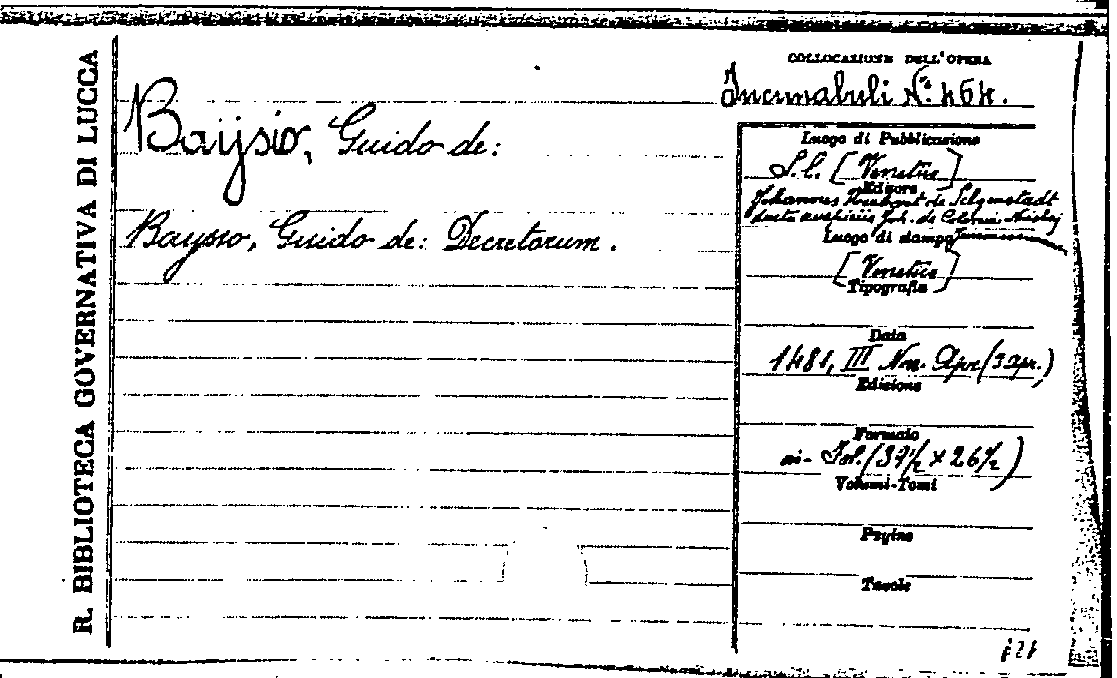 R. BIBLIOTECA GOVERNATIVA DI LUCCA
COLLOCAZIONE DELL'OPERA
Incunabuli N.º 464.
Baysio, Guido de:
Baysio, Guido de: Decretorum.
Luogo di Pubblicazione
S. l. [Venetiis]
Editore
Johannes de Selgenstadt
Joh. de Colonia,
Luogo di stampa
[Venetiis]
Tipografia
Data
1481, III Non. Apr. (3 apr.)
Edizione
Formato
in-Fol. (37½ × 26½)
Volumi-Tomi
Pagine
Tavole